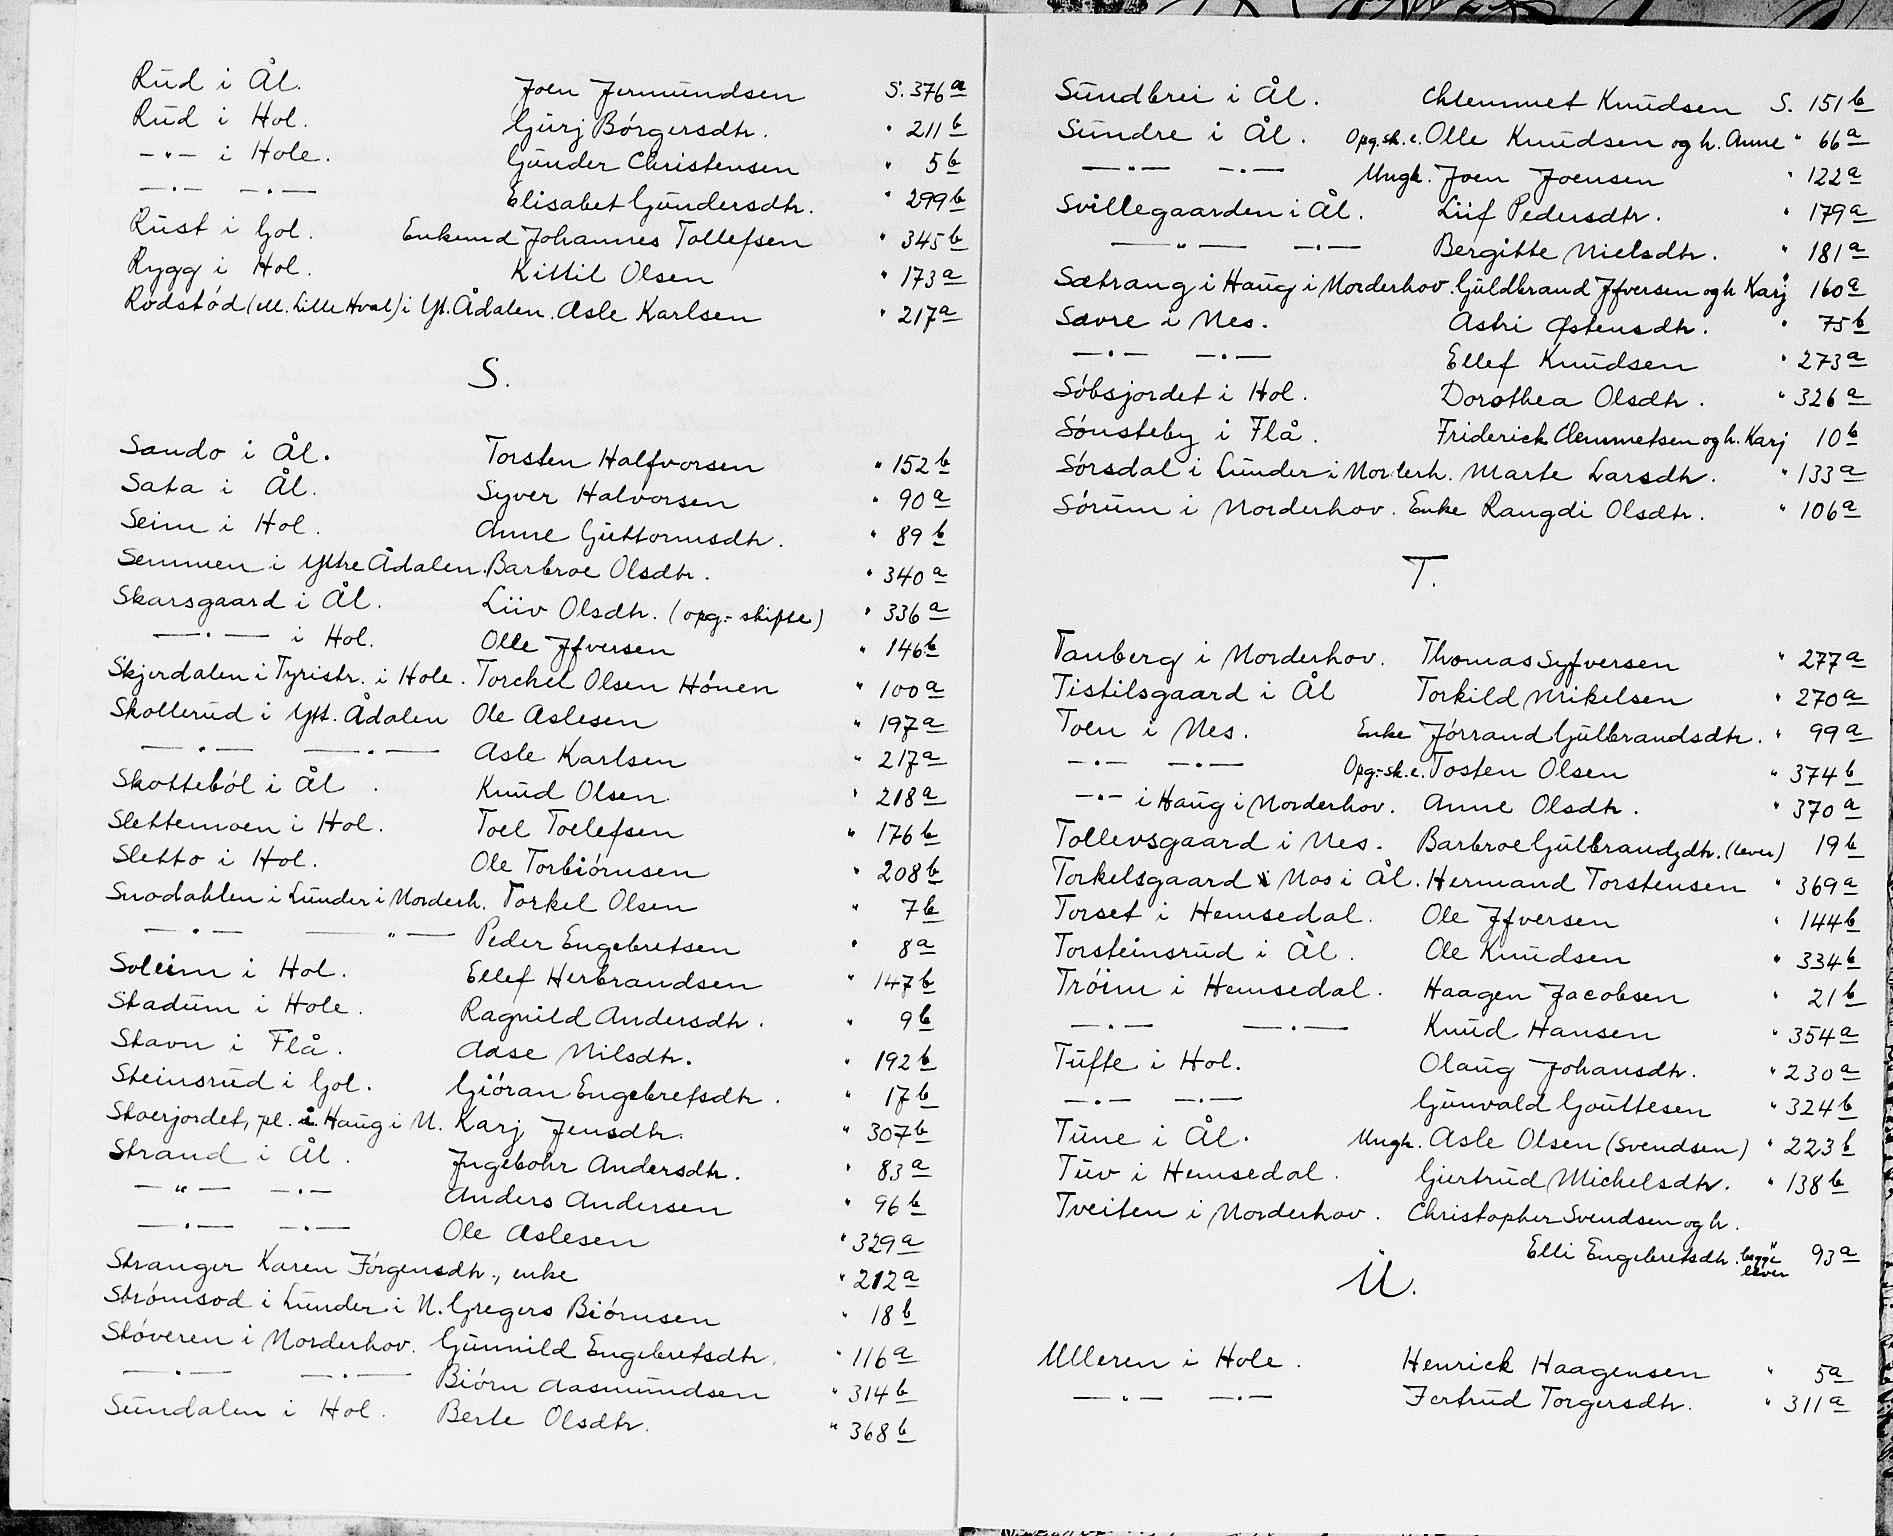 Rud i Ål. Joen Jermundsen S. 376a
Rud i Hol. Gurj Börgersdtr. " 211b
—"— i Hole. Gunder Christensen " 5b
—"— —"— Elisabet Gundersdtr. " 299b
Rust i Gol. Enkemd Johannes Tollefsen " 345b
Rygg i Hol. Kittil Olsen " 173a
Rødstød (ell. Lille Hval) i Yt. Ådalen. Asle Karlsen " 217a
S.
Sando i Ål. Torsten Halfvorsen " 152b
Sata i Ål. Syver Halvorsen " 90a
Seim i Hol. Anne Guttormsdtr. " 89b
Semmen i Yttre Ådalen. Barbroe Olsdtr. " 340a
Skarsgaard i Ål. Liiv Olsdtr. (opg.- skifte) " 336a
—"— i Hol. Olle Jfversen " 146b
Skjerdalen i Tyristr. i Hole. Torchel Olsen Hönen " 100a
Skollerud i Ytt. Ådalen Ole Aslesen " 197a
—"— —"— Asle Karlsen " 217a
Skotteböl i Ål. Knud Olsen " 218a
Slettemoen i Hol. Toel Toelefsen " 176b
Sletto i Hol. Ole Torbiörnsen " 208b
Snodahlen i Lunder i Norderh. Torkel Olsen " 7b
—"— —"— Peder Engebretsen " 8a
Soleim i Hol. Ellef Herbrandsen " 147b
Stadum i Hole. Ragnild Andersdtr. " 9b
Stavn i Flå. Aase Nilsdtr. " 192b
Steinsrud i Gol. Giöran Engebretsdtr. " 17b
Stoerjordet, pl. i Haug i N. Karj Jensdtr. " 307b
Strand i Ål. Jngebohr Andersdtr. " 83a
—"— —"— Anders Andersen " 96b
—"— —"— Ole Aslesen " 329a
Stranger Karen Jörgensdtr., enke " 212a
Strömsod i Lunder i N. Gregers Biörnsen " 18b
Stöveren i Norderhov. Gunnild Engebretsdtr. " 116a
—"— —"— Biörn Aasmundsen " 314b
Sundalen i Hol. Berte Olsdtr. " 368b
Sundbrei i Ål. Chlemmet Knudsen S. 151b
Sundre i Ål. Opg.sk.e. Olle Knudsen og h. Anne " 66a
—"— —"— Ungk. Joen Joensen " 122a
Svillegaarden i Ål. Liif Pedersdtr. " 179a
—"— —"— Bergitte Nielsdtr. " 181a
Sætrang i Haug i Norderhov. Guldbrand Jfversen og h Karj 160a
Sævre i Nes. Astri Östensdtr. " 75b
—"— —"— Ellef Knudsen " 273a
Söbsjordet i Hol. Dorothea Olsdtr. " 326a
Sönsteby i Flå. Friderick Clemmetsen og h. Karj 10b
Sörsdal i Lunder i Norderh. Marte Larsdtr. " 133a
Sörum i Norderhov. Enke Rangdi Olsdtr. " 106a
T.
Tanberg i Norderhov. Thomas Syfversen " 277a
Tistilsgaard i Ål Torkild Mikelsen " 270a
Toen i Nes. Enke Jörrand Gulbrandsdtr. " 99a
—"— —"— Opg.-sk.e. Tosten Olsen " 374b
—"— i Haug i Norderhov. Anne Olsdtr. " 370a
Tollevsgaard i Nes. Barbroe Gulbrandsdtr. (lever) 19b
Torkelsgaard i Nos i Ål. Hermand Torstensen " 369a
Torset i Hemsedal. Ole Jfversen " 144b
Torsteinsrud i Ål. Ole Knudsen " 334b
Tröim i Hemsedal. Haagen Jacobsen " 21b
—"— —"— Knud Hansen " 354a
Tufte i Hol. Olaug Johansdtr. " 230a
—"— —"— Gunvald Gouttesen " 324b
Tune i Ål. Ungk. Asle Olsen (Svendsen) " 223b
Tuv i Hemsedal. Giertrud Michelsdtr. " 138b
Tveiten i Norderhov. Christopher Svendsen og h.
Elli Engebretsdtr. begge lever " 93a
U.
Ulleren i Hole. Henrick Haagensen " 5a
—"— —"— Jertrud Torgersdtr. " 311a